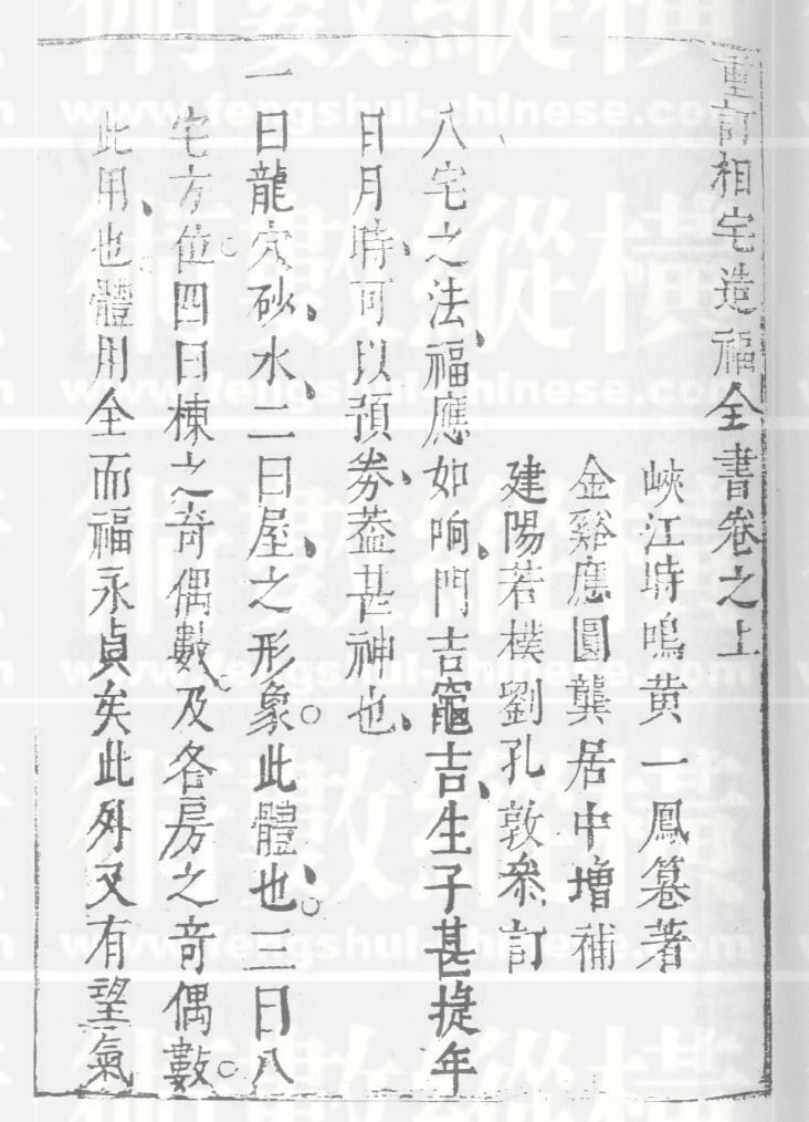 重訂相宅造福全書卷之上
峽江時鳴黃一鳳篹著
金谿應圓龔居中增補
建陽若樸劉孔敦叅訂
八宅之法、福應如响、門吉竈吉、生子甚捷年
日月時、可以預券、葢甚神也、
一曰龍穴砂、水、二曰屋、之形象。此體也、。三曰八
宅方位。四曰棟之竒偶數。及各房之竒偶數。
此用、也。體用全而福永貞矣此外又有望氣
術數縱橫
www.fengshui-chinese.com